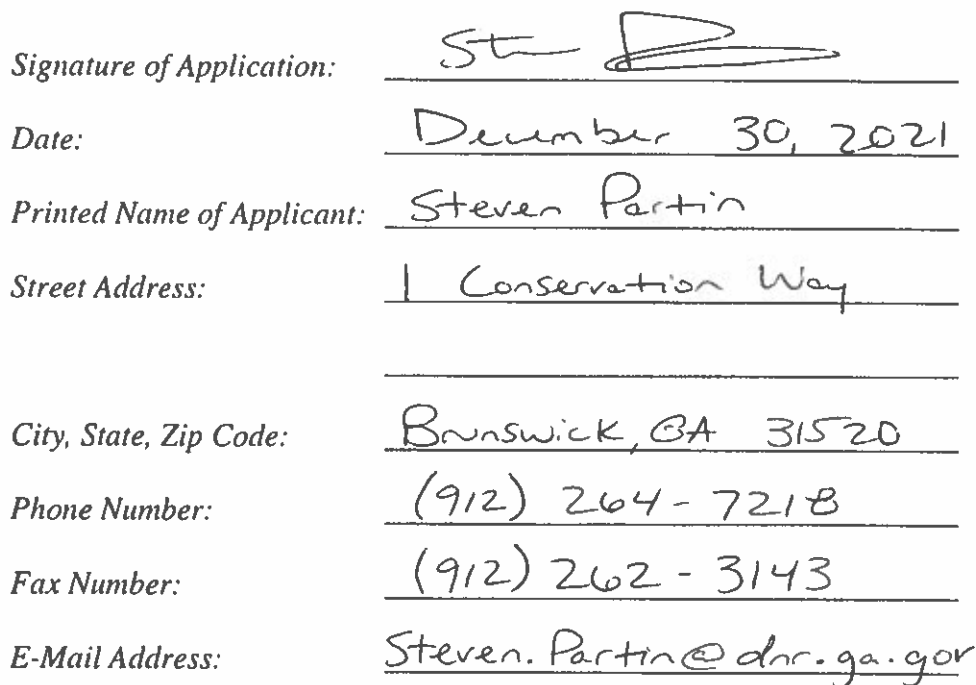 Signature of Application: St
Date: December 30, 2021
Printed Name of Applicant: Steven Partin
Street Address: 1 Conservation Way
City, State, Zip Code: Brunswick, GA 31520
Phone Number: (912) 264-7218
Fax Number: (912) 262-3143
E-Mail Address: Steven.Partin@dnr.ga.gov